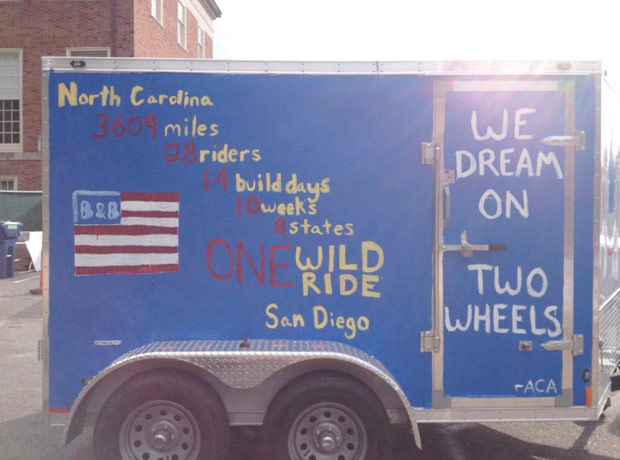 North Carolina
3604 miles
28 riders
14 build days
10 weeks
8 states
ONE WILD RIDE
San Diego
B&B
WE
DREAM
ON
TWO
WHEELS
-ACA